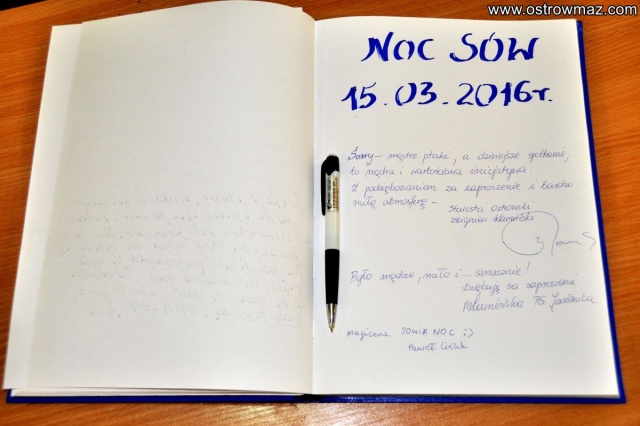 www.ostrowmaz.com
NOC SÓW
15.03.2016r.
Sowy – mądre ptaki, a dzisiejsze spotkanie,
to mądra i wartościowa inicjatywa.
Z podziękowaniem za zaproszenie i bardzo
miłą atmosferę –
Starosta Ostrowski
Zbigniew Kamiński
Było mądrze, miło i... smacznie!
Dziękuję za zaproszenie
Magiczna SOWIA NOC :)
Paweł